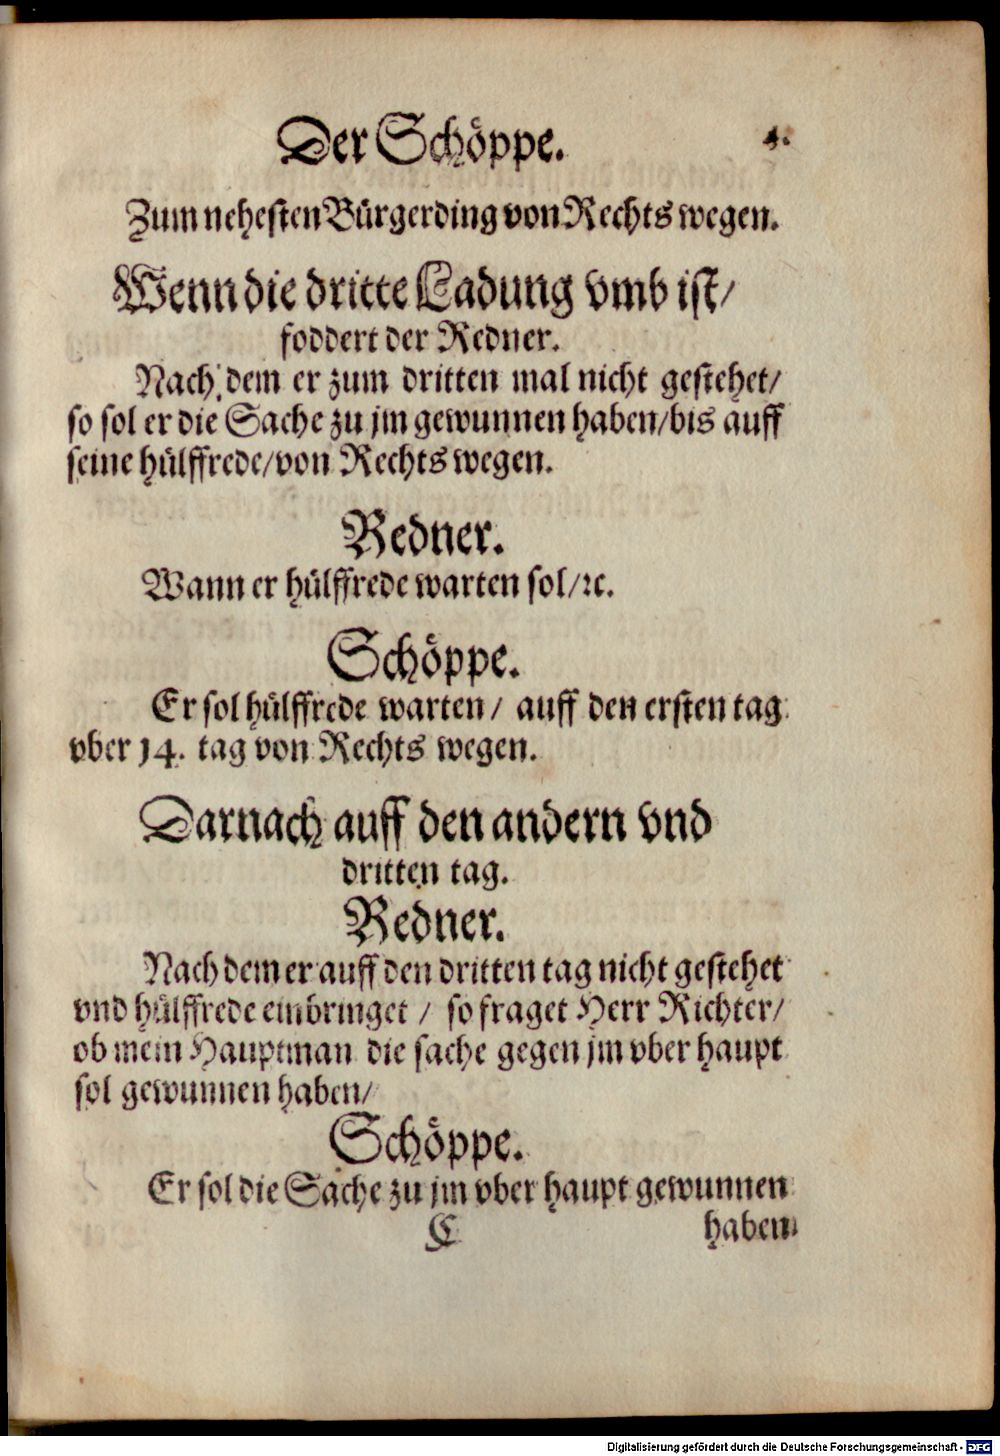 Der Schöppe. 4.
Zum nehesten Bürgerding von Rechts wegen.
Wenn die dritte Ladung vmb ist/
foddert der Redner.
Nach dem er zum dritten mal nicht gestehet/
so sol er die Sache zu jm gewunnen haben/bis auff
seine hülffrede/von Rechts wegen.
Redner.
Wann er hülffrede warten sol/ꝛc.
Schöppe.
Er sol hülffrede warten/ auff den ersten tag
vber 14. tag von Rechts wegen.
Darnach auff den andern vnd
dritten tag.
Redner.
Nach dem er auff den dritten tag nicht gestehet
vnd hülffrede einbringet / so fraget Herr Richter/
ob mein Hauptman die sache gegen jm vber haupt
sol gewunnen haben/
Schöppe.
Er sol die Sache zu jm vber haupt gewunnen
C haben
Digitalisierung gefördert durch die Deutsche Forschungsgemeinschaft - DFG